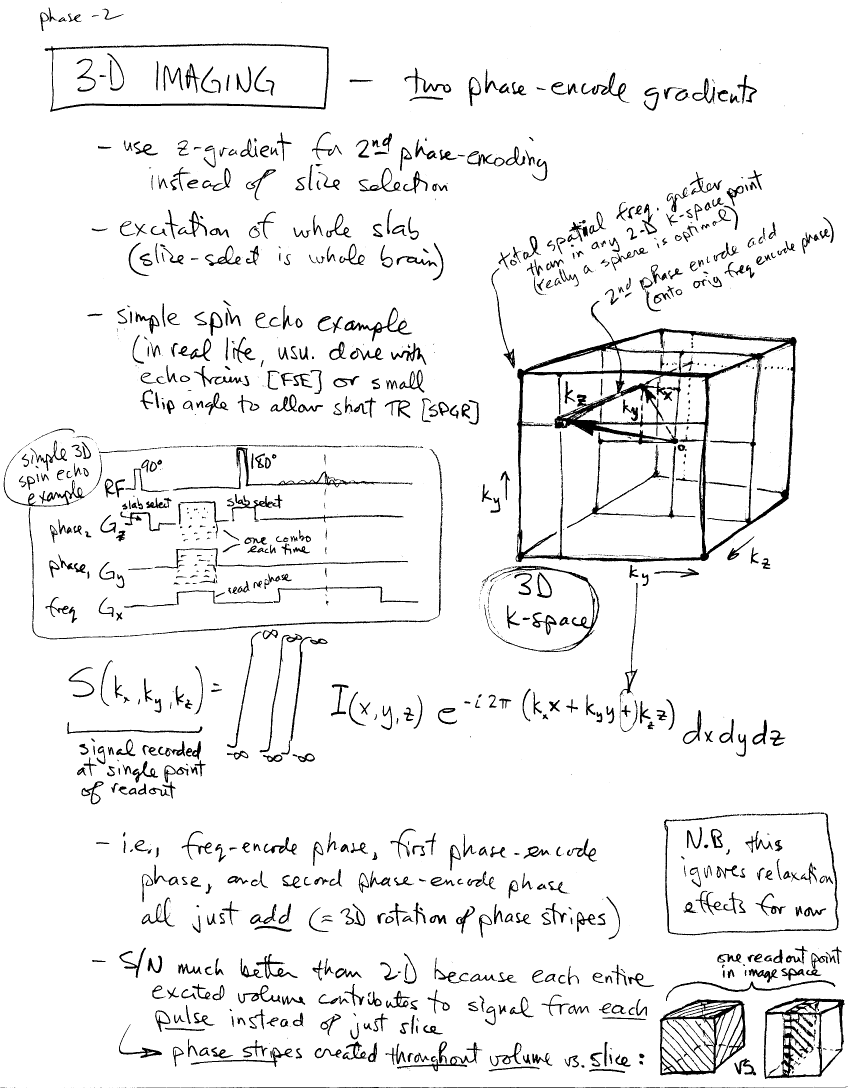 phase-2
3-D IMAGING — two phase-encode gradients
- use z-gradient for 2nd phase-encoding
instead of slice selection
- excitation of whole slab
(slice-select is whole brain)
- simple spin echo example
(in real life, usu. done with
echo trains [FSE] or small
flip angle to allow short TR [SPGR]
total spatial freq. greater
than in any 2-D k-space point
(really a sphere is optimal)
2nd phase encode add
(onto orig freq encode phase)
kz
ky
kx
0
ky ↑
ky →
kz
3D
k-space
simple 3D
spin echo
example
RF
90°
180°
phase2 Gz
slab select
slab select
one combo
each time
phase1 Gy
read rephase
freq Gx
S(kx, ky, kz) = ∞ ∞ ∞ -∞ -∞ -∞ I(x,y,z) e -i2π (kxx + kyy + kzz) dxdydz
signal recorded
at single point
of readout
- i.e., freq-encode phase, first phase-encode
phase, and second phase-encode phase
all just add (= 3D rotation of phase stripes)
N.B, this
ignores relaxation
effects for now
- S/N much better than 2-D because each entire
excited volume contributes to signal from each
pulse instead of just slice
→ phase stripes created throughout volume vs. slice:
one readout point
in image space
vs.